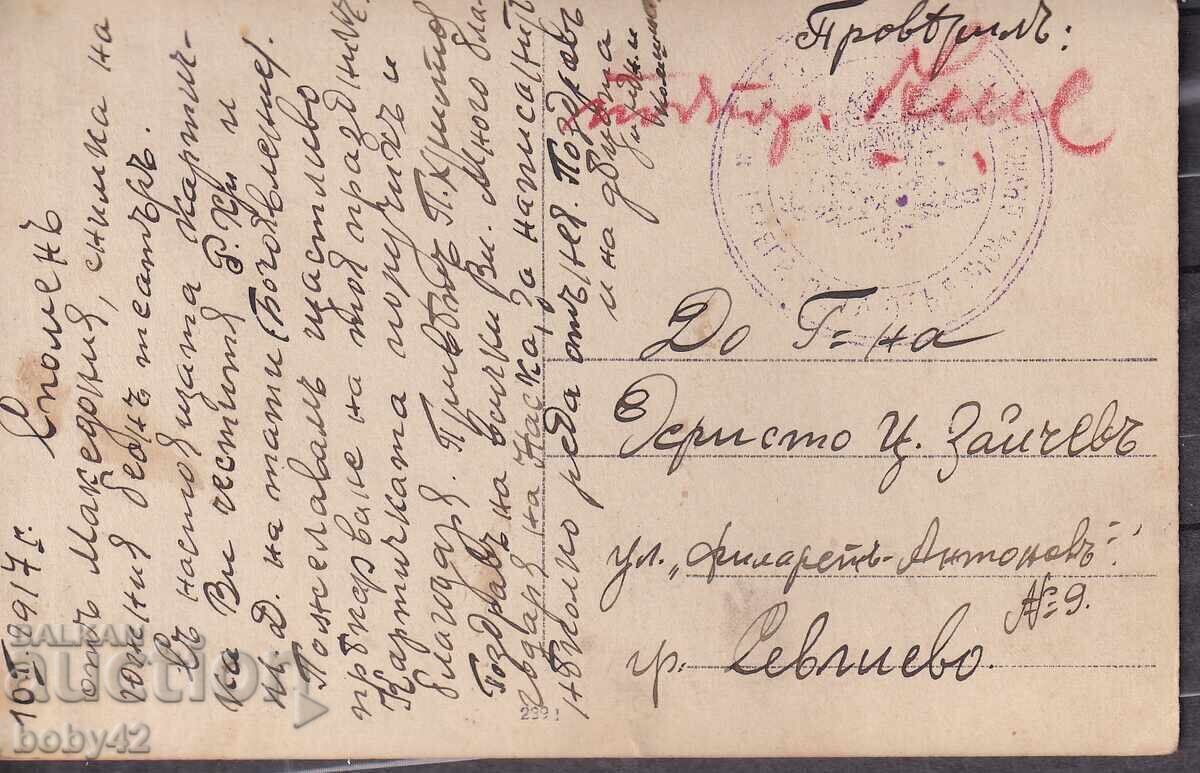 10 II 1917 г. Споменъ
отъ Македония, снимка на
военния беонъ театъръ.
Съ настоящата картич-
ка Ви честитя Р. Хр. и
и Д. на тати (Богоявление).
Пожелавамъ щастливо
прѣкарване на тоя праздникъ.
Картичката получихъ и
благодаря. Привѣтъ П. Христов
Поздравъ на всички Ви. Много бла-
годаря на Наска, за написанитѣ
нѣколко реда отъ нея. Поздравъ
и на двамата
Провѣрилъ:
подпор.
До Г-на
Христо Ц. Зайчевъ
ул. „Филаретъ-Антоновъ"
№ 9.
гр. Севлиево.
2991
BALKAN
auction
boby42